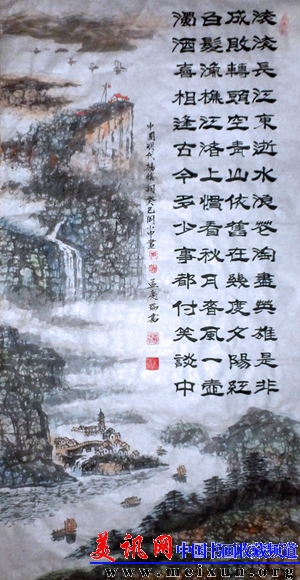 滾滾長江東逝水浪花淘盡英雄是非
成敗轉頭空青山依舊在幾度夕陽紅
白髮漁樵江渚上慣看秋月春風一壺
濁酒喜相逢古今多少事都付笑談中
中國明代楊慎詞癸巳
美讯网 中国书画收藏频道
www.meixun.org